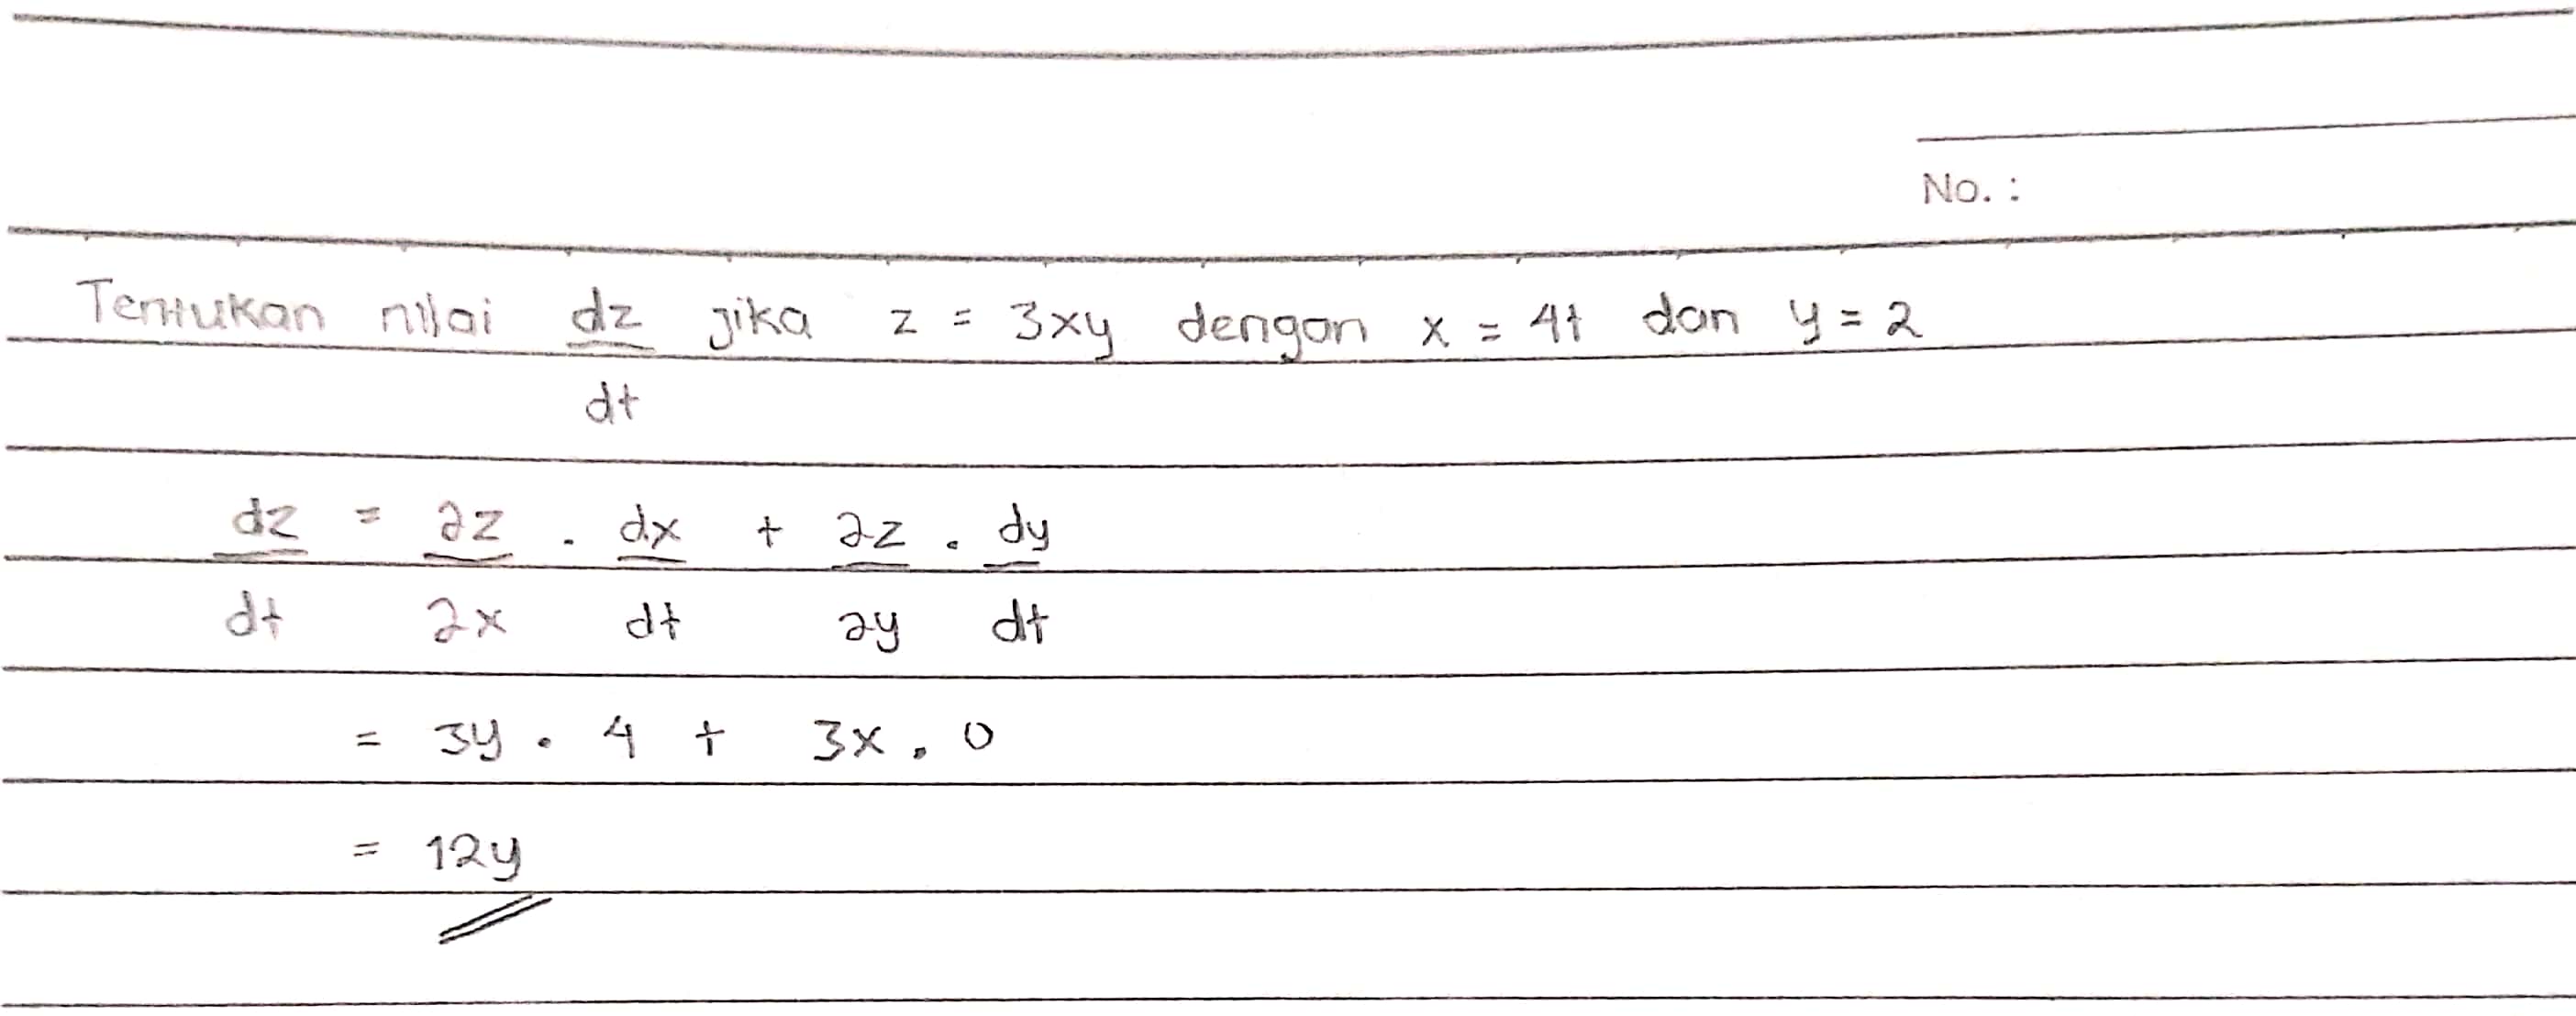 No. :
Tentukan nilai dz/dt jika z = 3xy dengan x = 4t dan y = 2
dz/dt = ∂z/∂x . dx/dt + ∂z/∂y . dy/dt
= 3y . 4 + 3x . 0
= 12y